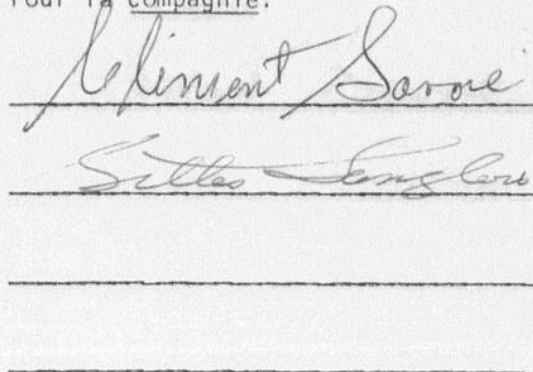 Pour la compagnie:
Clément Savoie
Gilles